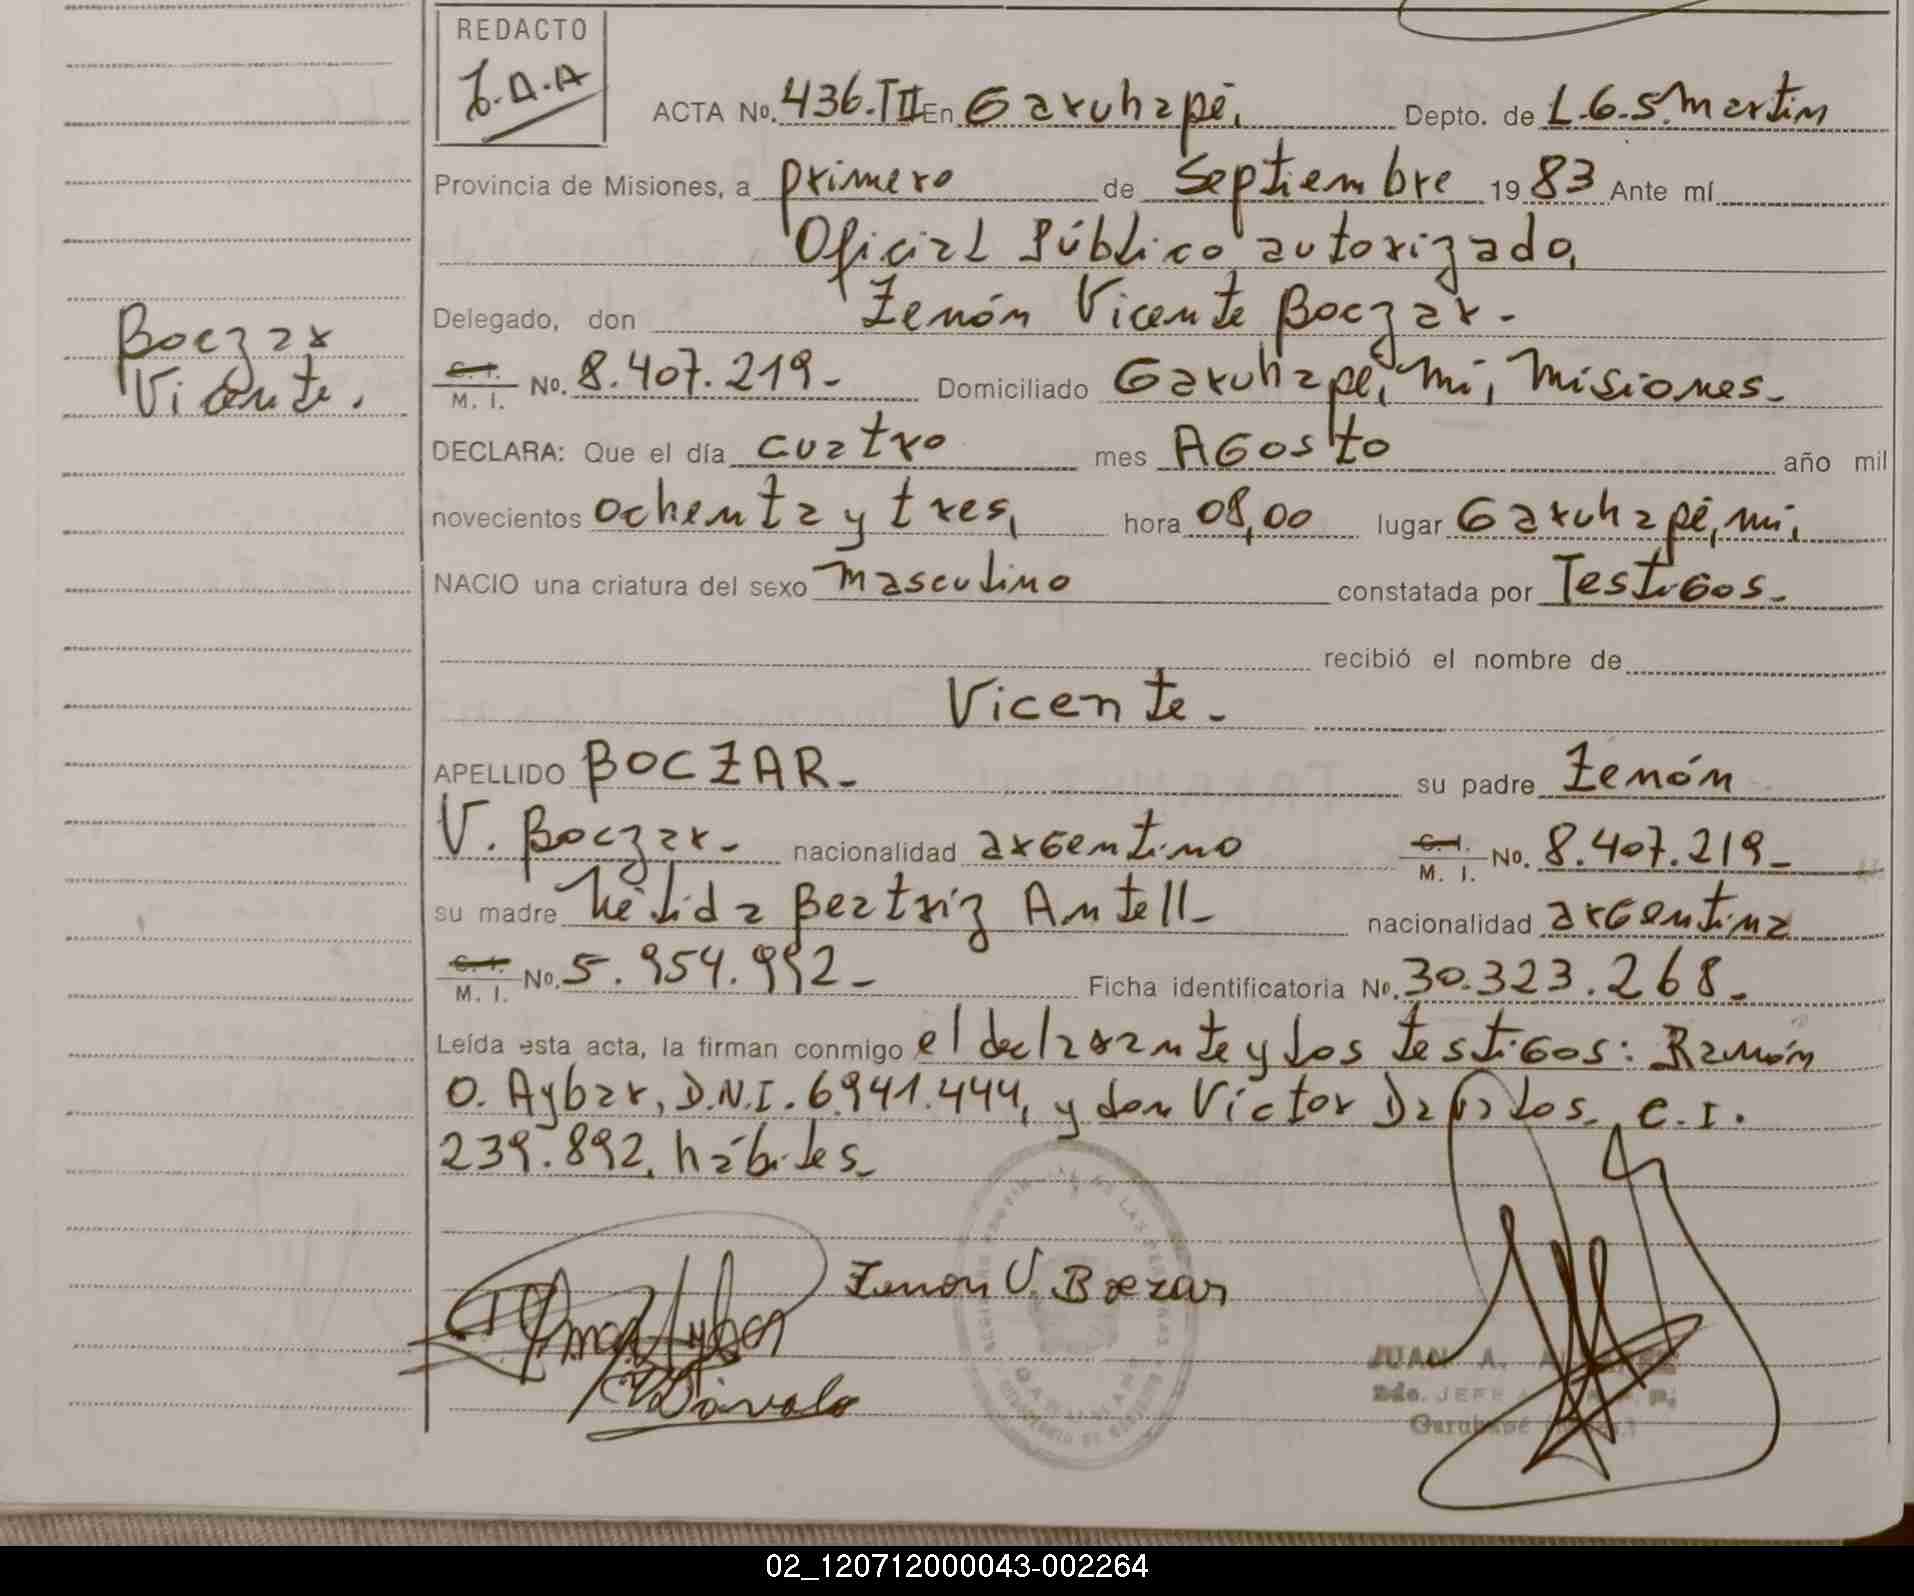 REDACTO
J.A.A
ACTA No. 436.TII En Garuhapé, Depto. de L.G.S.Martin
Provincia de Misiones, a primero de Septiembre 19 83 Ante mí
Oficial Público autorizado,
Delegado, don Zenón Vicente Boczar.-
Boczar
Vicente.
C. I.
M. I. No. 8.407.219.- Domiciliado Garuhapé, Mi, Misiones.-
DECLARA: Que el día cuatro mes AGosto año mil
novecientos ochenta y tres, hora 08,00 lugar Garuhapé, Mi,
NACIO una criatura del sexo masculino constatada por Testigos.-
recibió el nombre de
Vicente.-
APELLIDO BOCZAR.- su padre Zenón
V. Boczar.- nacionalidad argentino C. I. M. I. No. 8.407.219.-
su madre Nélida Beatriz Antell.- nacionalidad argentina
C. I.
M. I. No. 5.954.992.- Ficha identificatoria No. 30.323.268.-
Leída esta acta, la firman conmigo el declarante y los testigos: Ramón
O. Aybar, D.N.I. 6.941.444, y don Victor Davalos.- C.I.
239.892, hábiles.-
Zenon V. Boczar
JUAN A.
2do. JEFE
Garuhapé
02_120712000043-002264